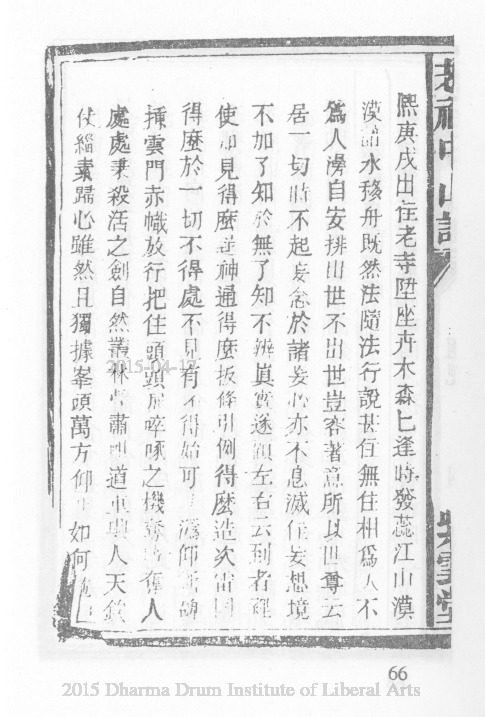 熈庚戌出住老寺陞座卉木森匕逢時發蕊江山漠
漠 水移舟既然法隨法行說甚住無住相爲人不
爲人漫自安排出世不出世豈容著意所以世尊云
居一切時不起妄念於諸妄心亦不息滅住妄想境
不加了知於無了知不辨眞實遂顧左右云到者裡
使 見得麼 神通得麼扳條引例得麼造次
得麼於一切不得處不見有不得始可 溈仰 碑
揷雲門赤幟放行把住頭頭 啐啄之機奪 奪人
處處秉殺活之劍自然叢林 肅 道 人天欽
伏緇素歸心雖然且獨據峯頭萬方仰 如何
2015-04-17
66
2015 Dharma Drum Institute of Liberal Arts